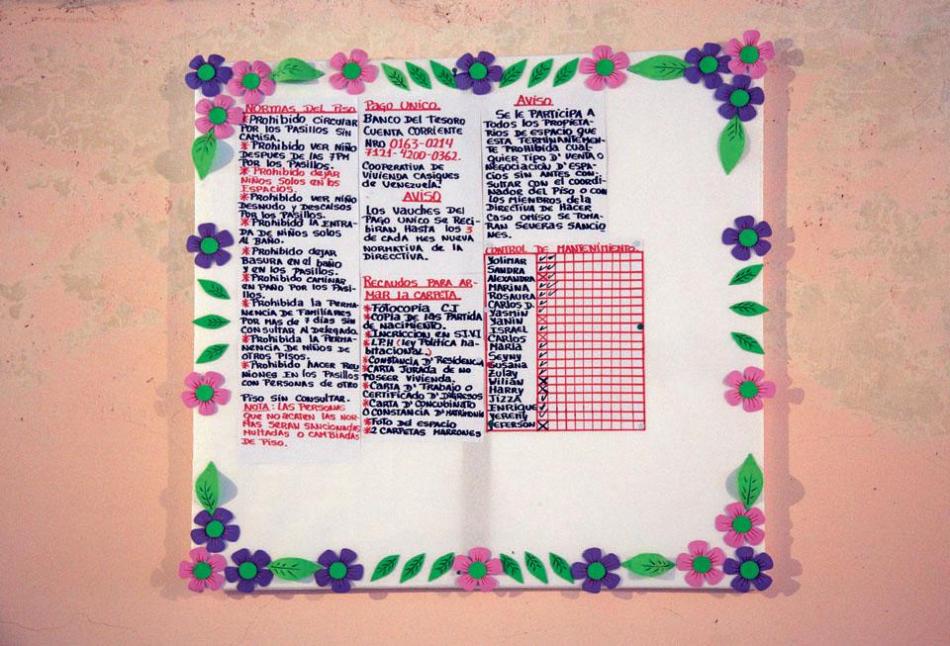 NORMAS DEL PISO
*PROHIBIDO CIRCULAR
POR LOS PASILLOS SIN
CAMISA.
*PROHIBIDO VER NIÑO
DESPUES DE LAS 7PM
POR LOS PASILLOS.
*PROHIBIDO DEJAR
NIÑOS SOLOS EN LOS
ESPACIOS.
*PROHIBIDO VER NIÑO
DESNUDO Y DESCALSOS
POR LOS PASILLOS.
*PROHIBIDO LA ENTRA-
DA DE NIÑOS SOLOS
AL BAÑO.
*PROHIBIDO DEJAR
BASURA EN EL BAÑO
Y EN LOS PASILLOS.
*PROHIBIDO CAMINAR
EN PAÑO POR LOS PASI-
LLOS.
*PROHIBIDA LA PERMA-
NENCIA DE FAMILIARES
POR MAS DE 7 DÍAS SIN
CONSULTAR AL DELEGADO.
*PROHIBIDA LA PERMA-
NENCIA DE NIÑOS DE
OTROS PISOS.
*PROHIBIDO HACER REU
NIONES EN LOS PASILLOS
CON PERSONAS DE OTRO
PISO SIN CONSULTAR.
NOTA: LAS PERSONAS
QUE NO ACATEN LAS NOR-
MAS SERAN SANCIONADAS
MULTADAS O CAMBIADAS
DE PISO.
PAGO UNICO.
BANCO DEL TESORO
CUENTA CORRIENTE
NRO 0163-0214
7121-4200-0362.
COOPERATIVA DE
VIVIENDA CASIQUES
DE VENEZUELA.
AVISO
LOS VAUCHES DEL
PAGO UNICO SE RECI-
BIRAN HASTA LOS 3
DE CADA MES NUEVA
NORMATIVA DE LA
DIRECCTIVA.
RECAUDOS PARA AR-
MAR LA CARPETA.
*FOTOCOPIA C.I
*COPIA DE LAS PARTIDA
DE NACIMIENTO.
*INCRICCION EN S.I.V.I
*L.P.H (LEY POLITICA HA-
BITACIONAL.)
*CONSTANCIA D' RESIDENCIA
*CARTA JURADA DE NO
POSEER VIVIENDA.
*CARTA D' TRABAJO O
CERTIFICADO D' INGRESOS
*CARTA D' CONCUBINATO
O CONSTANCIA D' MATRIMONIO
*FOTO DEL ESPACIO
*2 CARPETAS MARRONES
AVISO
SE LE PARTICIPA A
TODOS LOS PROPIETA-
RIOS DE ESPACIO QUE
ESTA TERMINANTEMEN-
TE PROHIBIDA CUAL-
QUIER TIPO D' VENTA O
NEGOCIACIÓN D' ESPA-
CIOS SIN ANTES CON-
SULTAR CON EL COORDI-
NADOR DEL PISO O CON
LOS MIEMBROS DE LA
DIRECTIVA DE HACER
CASO OMISO SE TOMA-
RAN SEVERAS SANCIO
NES.
CONTROL DE MANTENIMIENTO.
YOLIMAR
SANDRA
ALEXANDRA
MARINA
ROSAURA
CARLOS D.
YASMIN
YANIN
ISRAEL
CARLOS
MARIA
SEYNY
SUSANA
ZULAY
WILIÁN
HARRY
JIZZA
ENRIQUE
YERENY
JEFERSON